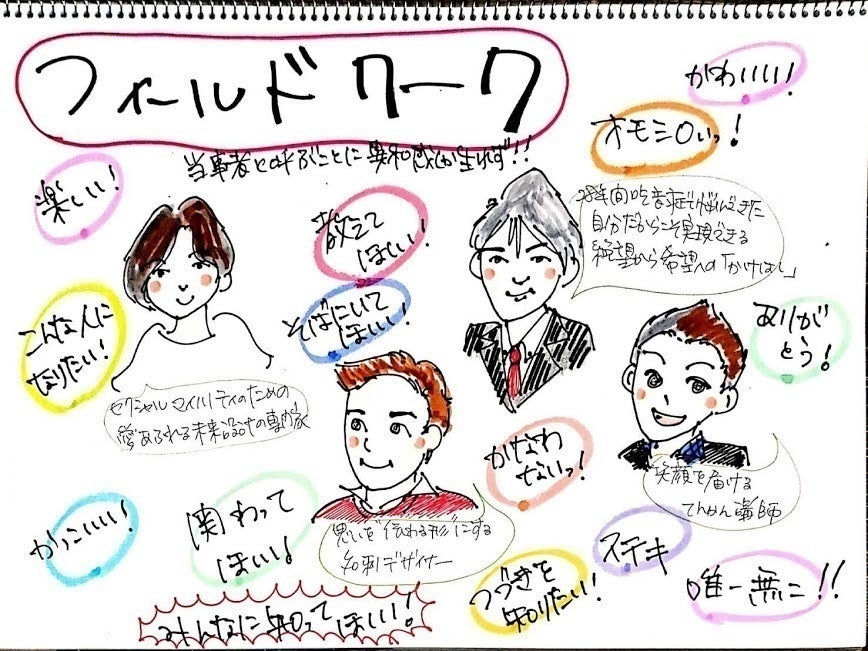 フィールドワーク
かわいい！
オモシロいっ！
当事者と呼ぶことに異和感が生れず！！
楽しい！
教えて
ほしい！
28年間吃音症で悩んできた
自分だからこそ実現できる
絶望から希望への「かけはし」
こんな人に
なりたい！
そばにいて
ほしい！
ありが
とう！
セクシャルマイノリティのための
愛あふれる未来設計の専門家
かなわ
ないっ！
笑顔を届ける
てんかん講師
かっこいい！
関わって
ほしい！
思いを伝わる形にする
名刺デザイナー
ステキ
つづきを
知りたい！
唯一無二！！
みんなに知ってほしい！